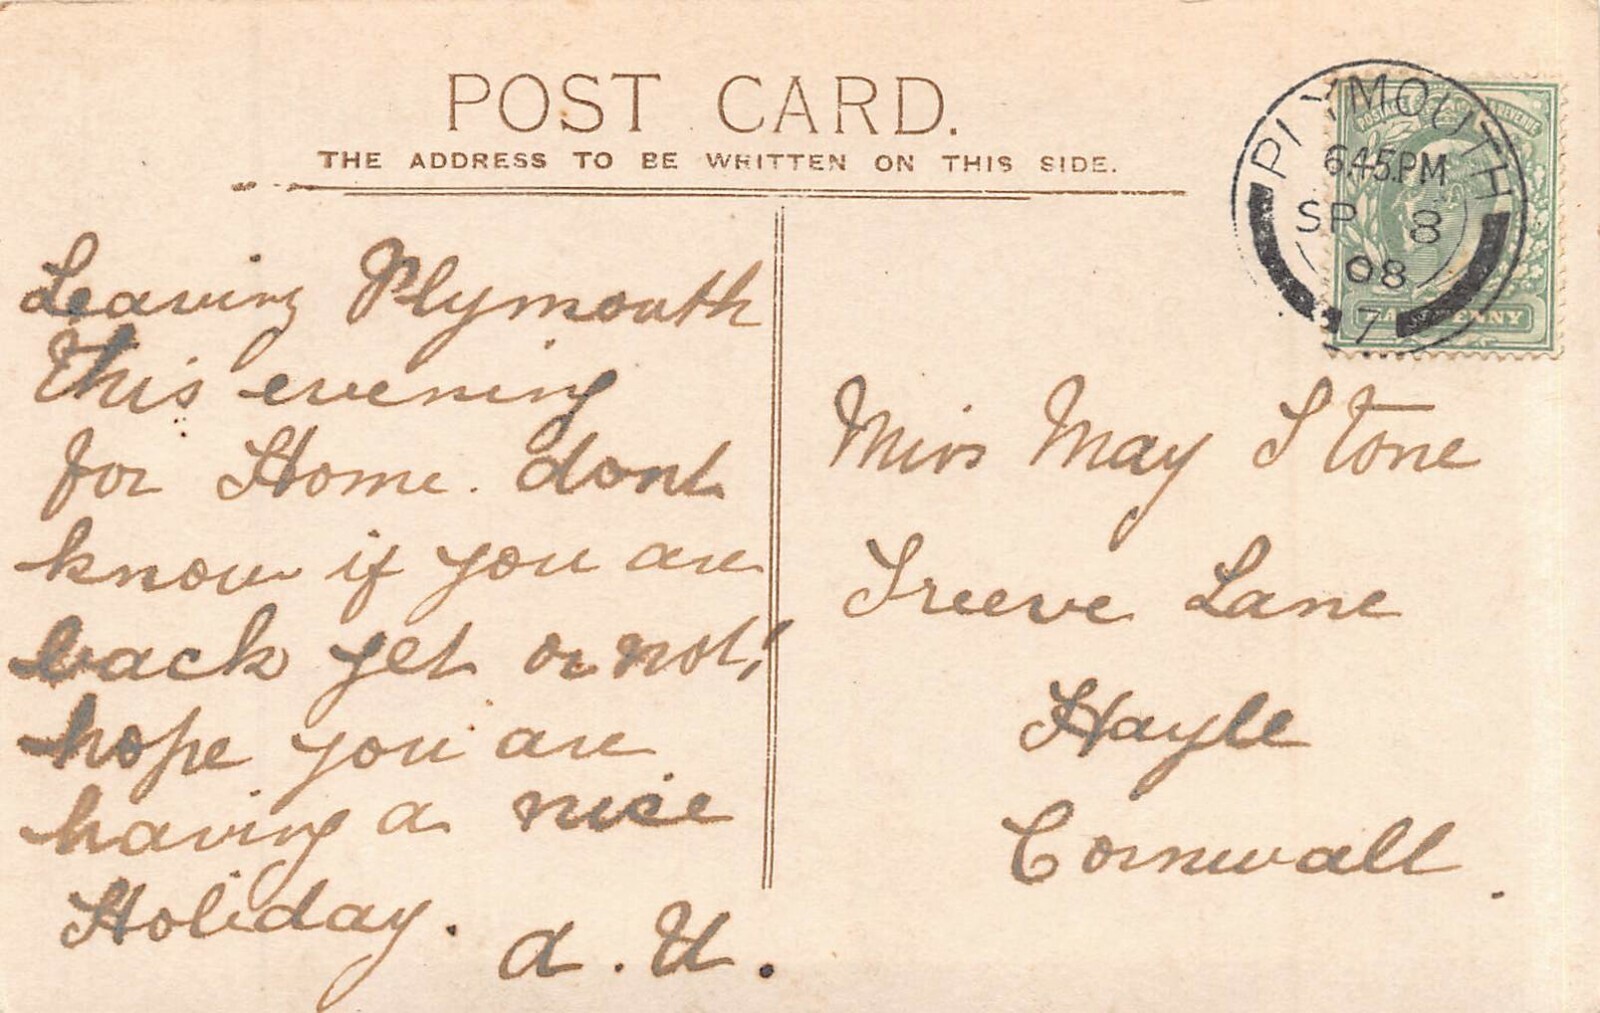 POST CARD.
THE ADDRESS TO BE WRITTEN ON THIS SIDE.
PLYMOUTH
6.45.PM
SP 8
08
7
POSTAGE & REVENUE
HALFPENNY
Leaving Plymouth
This evening
for Home. dont
know if you are
back yet or not!
hope you are
having a nice
Holiday.
A. U.
Miss May Stone
Treeve Lane
Hayle
Cornwall.